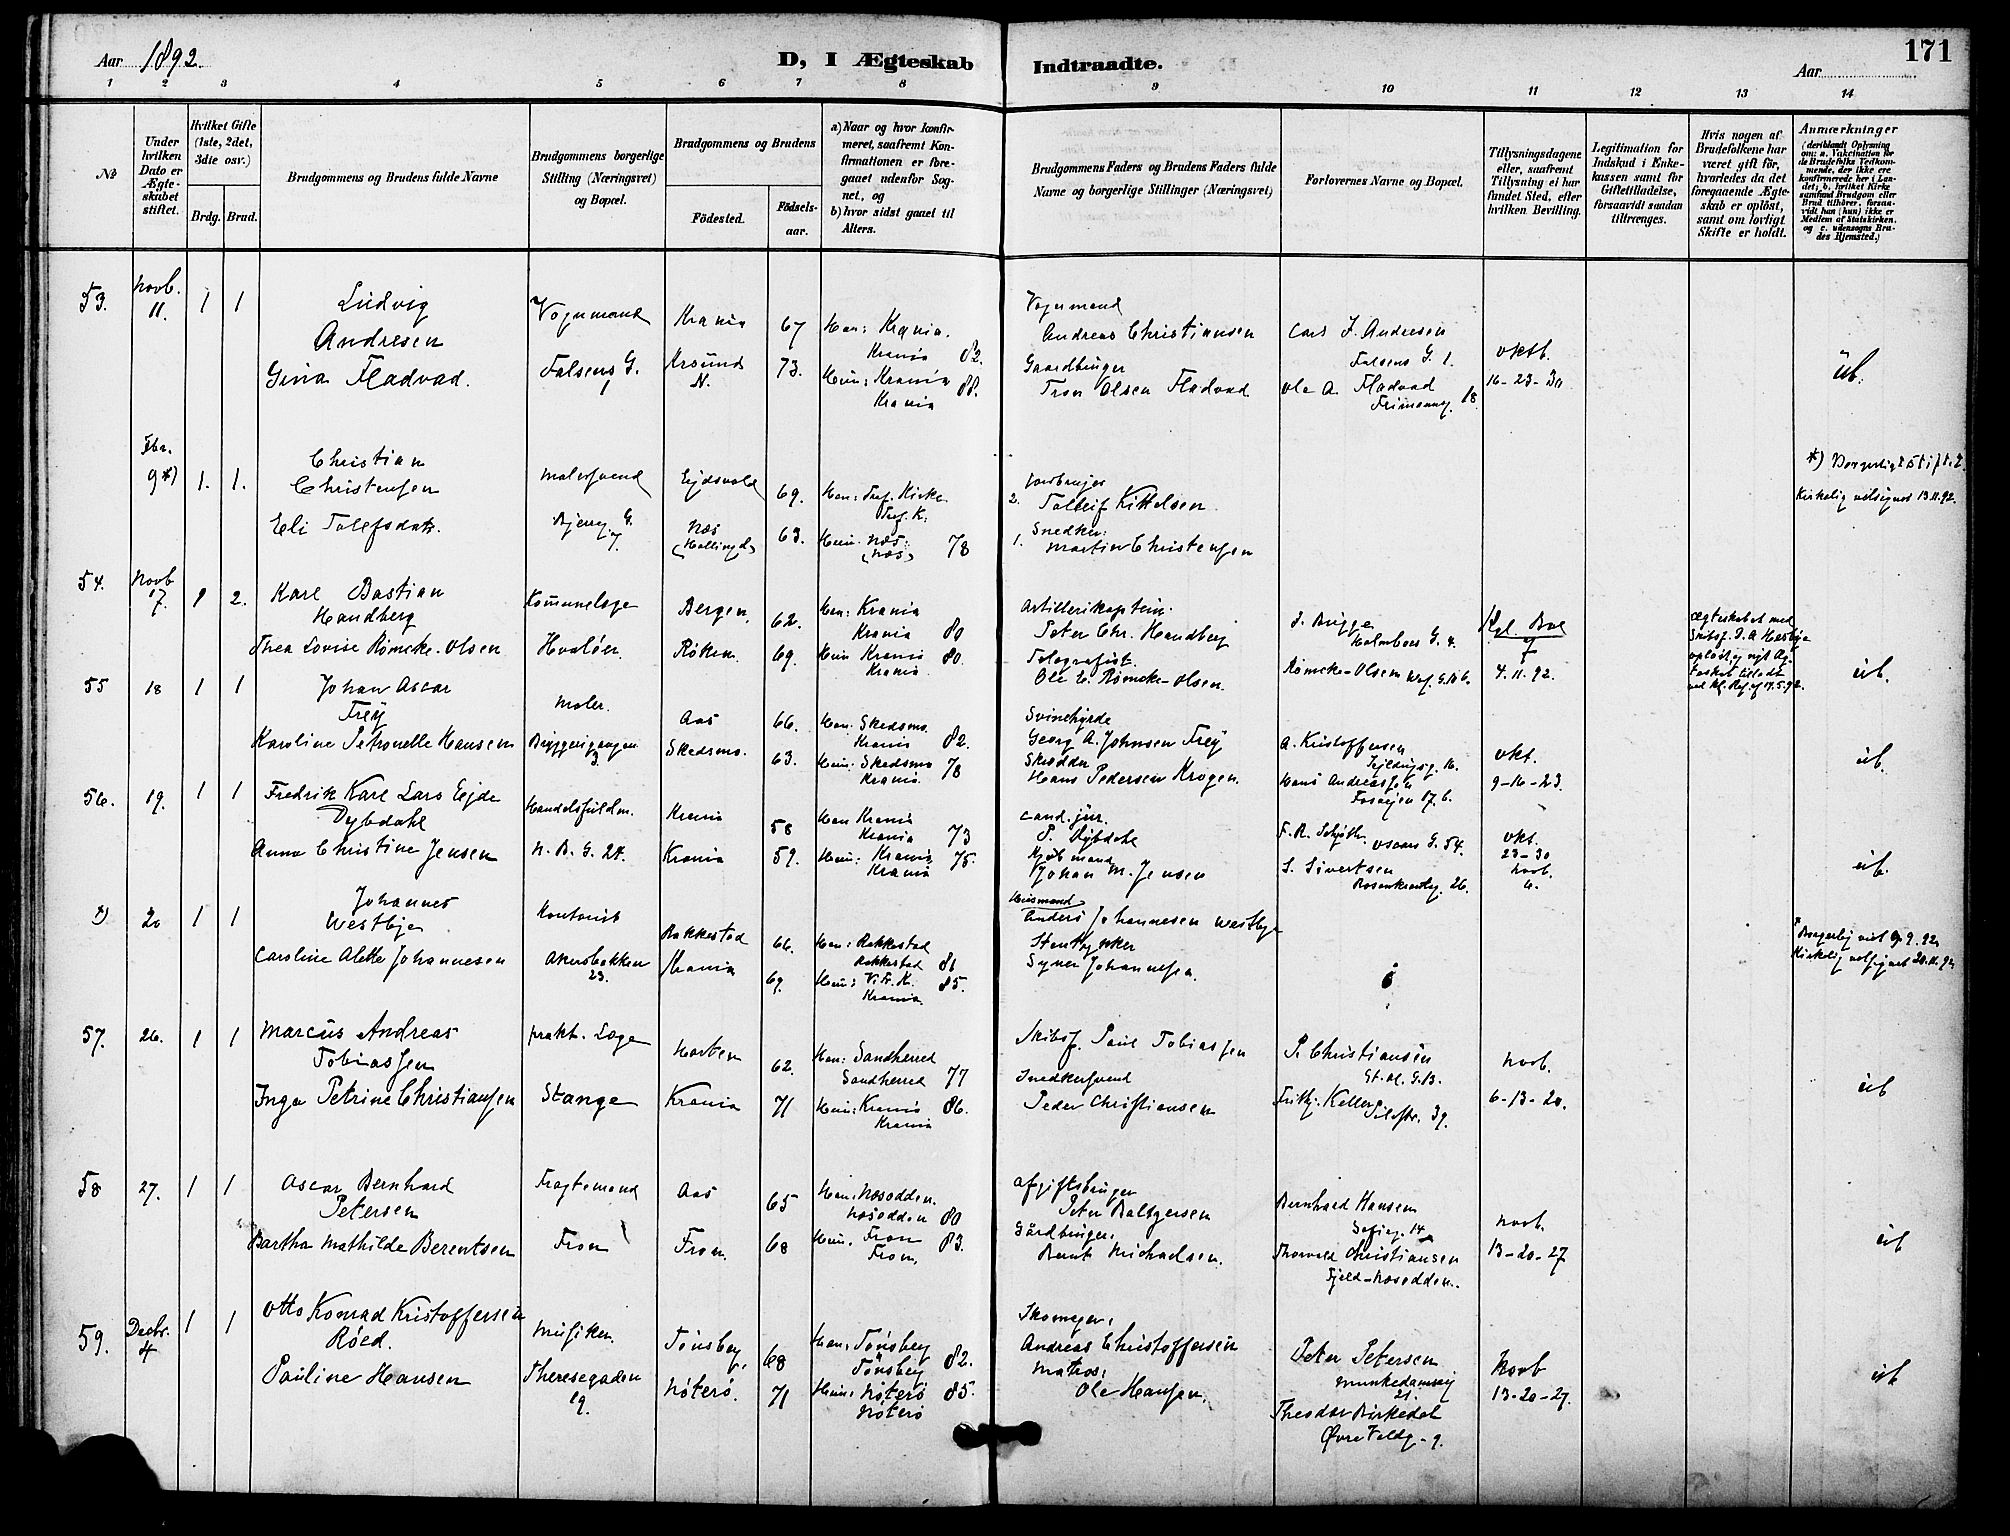 171
Aar 1892.
D, I Ægteskab Indtraadte.
Aar
1 2 3 4 5 6 7 8 9 10 11 12 13 14
№
Under hvilken Dato er Ægteskabet stiftet.
Hvilket Gifte (1ste, 2det, 3die osv.)
Brdg. Brud.
Brudgommens og Brudens fulde Navne
Brudgommens borgerlige Stilling (Næringsvei) og Bopæl.
Brudgommens og Brudens
Födested.
Födselsaar.
a) Naar og hvor konfirmeret, saafremt Konfirmationen er foregaaet udenfor Sognet, og
b) hvor sidst gaaet til Alters.
Brudgommens Faders og Brudens Faders fulde Navne og borgerlige Stillinger (Næringsvei)
Forlovernes Navne og Bopæl.
Tillysningsdagene eller, saafremt Tillysning ei har fundet Sted, efter hvilken Bevilling.
Legitimation for Indskud i Enkekassen samt for Giftetilladelse, forsaavidt saadan tiltrænges.
Hvis nogen af Brudefolkene har været gift för, hvorledes da det foregaaende Ægteskab er oplöst, samt om lovligt Skifte er holdt.
Anmærkninger
(deriblandt Oplysning om: a. Vakcination for de Brudefolks Vedkommende, der ikke ere konfirmerede her i Landet; b. hvilket Kirkesamfund Brudgom eller Brud tilhörer, forsaavidt han (hun) ikke er Medlem af Statskirken, og c. udensogns Brudes Hjemsted.)
53. Novb. 11. 1 1
Ludvig
Andresen
Gina Fladvad.
Vognmand
Falsens G.
1
Krania 67
Krsund N. 73.
Han: Krania.
Krania 82.
Hun: Krania 88.
Krania
Vognmand
Andreas Christiansen
Gaardbruger
Tron Olsen Fladvad
Lars J. Andresen
Falsens G. 1.
Ole A. Fladvad
18.
oktb.
16-23-30
üb.
9 *) 1. 1.
Christian
Christensen
Eli Tolefsdatr.
Malersvend
Bjerreg. G.
7.
Ejdsvold 69.
Næs
(Hallingd) 63.
Han: Tref. Kirke
Tref. K.
Hun: Næs: 78
(Næs)
2. Tolleif Kittelsen
1. Snedker:
Martin Christensen
*) Borgerligt stift. 9/2
Kirkelig velsignet 13.11.92.
54. Novb 17. 1 2.
Karl Bastian
Handberg
Thea Lovise Römcke-Olsen
Kommunelæge
Hvalöer
Bergen 62.
Röken 69.
Han: Krania
Krania 80
Hun Krania 80.
Krania
Artillerikaptein.
Peter Chr. Handberg
Telegrafist.
Ole L. Römcke-Olsen.
J. Brigge
Holmboes G. 4.
Römcke-Olsen
Kgl. Bev.
af
4.11.92.
Ægteskabet med
üb.
55 18 1 1
Johan Ascar
Frey
Karoline Petronelle Hansen
Maler.
Bryggerigangen
3.
Aas 66.
Skedsmo. 63.
Han: Skedsmo.
Krania 82.
Hun: Skedsmo 78
Krania
Svinehyrde
Georg A. Johnsen Frey
Skrædder
Hans Pedersen Krogen.
A. Kristoffersen
16.
Hans Andreassen
Fosvejen 17.b.
okt.
9-16-23.
üb.
56. 19. 1 1
Fredrik Karl Lars Ejde
Dybdahl
Anna Christine Jensen
Handelsfuldm.
N. B. G. 27.
Krania 58
Krania 59.
Han Krania
Krania 73
Hun: Krania 75.
Krania
cand. jur.
P. Dybdahl
Kjøbmand
Johan M. Jensen
F. R. Schjøth
Oscars G. 54.
S. Sivertsen
Rosenkrantzg. 26.
okt.
23-30
Novb.
6.
üb.
*) 20 1 1
Johannes
Westbye
Caroline Alette Johannesen
Kontorist
Akersbakken
23.
Rakkestad 66.
Krania 69.
Han: Rakkestad
Rakkestad 81
Hun: V. Fr. K. 85.
Krania.
Husmand
Anders Johannesen Westbye
Stenhugger
Syver Johannesen.
Borgerlig viet 9.9.92.
Kirkelig velsignet 20.11.92.
57. 26. 1 1
Marcus Andreas
Tobiassen
Inga Petrine Christiansen
prakt. Læge
Stange
Horten 62.
Krania 71
Han: Sandherred
Sandherred 77
Hun: Krania 86.
Krania
Skibsf. Paul Tobiassen
Snedkersvend
Peder Christiansen
P. Christiansen
St. Ol. G. 13.
Frithj. Keller
Pilestr. 39.
Novb.
6-13-20.
üb
58 27. 1 1
Oscar Bernhard
Petersen
Bartha Mathilde Berentsen
Fragtemand
Fron
Aas 65
Fron 68
Han: Næsodden.
Næsodden 80
Hun. Fron 83.
Fron.
Afgiftsbruger
Peter Baltzersen
Gårdbruger.
Bernt Michaelsen.
Bernhard Hansen
Sofieg. 14
Thorvald Christiansen
Fjeld-Næsodden.
Novb.
13-20-27
üb
59. Decbr. 4 1 1
Otto Konrad Kristoffersen
Röed.
Pauline Hansen
Musiker.
Theresegaden
19.
Tönsberg, 68
Nöterö. 71
Han: Tönsberg
Tönsberg 82.
Hun: Nöterö 85.
Nöterö
Skomager:
Andreas Christoffersen
Matros:
Ole Hansen.
Peter Petersen
Munkedamsvej
21.
Theodor Birkedal
Øvre Voldg. 9.
Novb
13-20-27.
üb